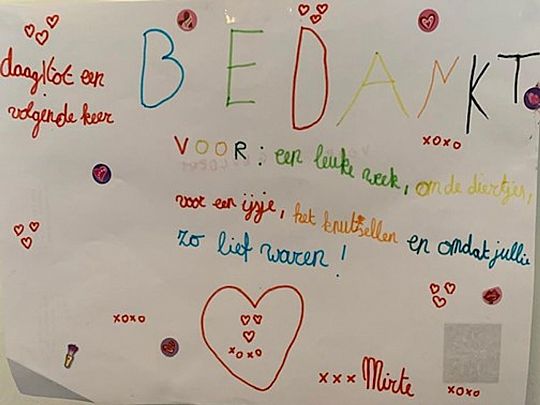 BEDANKT
daag/tot een
volgende keer
xoxo
VOOR: een leuke week, om de diertjes,
voor een ijsje, het knutsellen en omdat jullie
zo lief waren!
xoxo
xoxo
xxx Mirte
xoxo